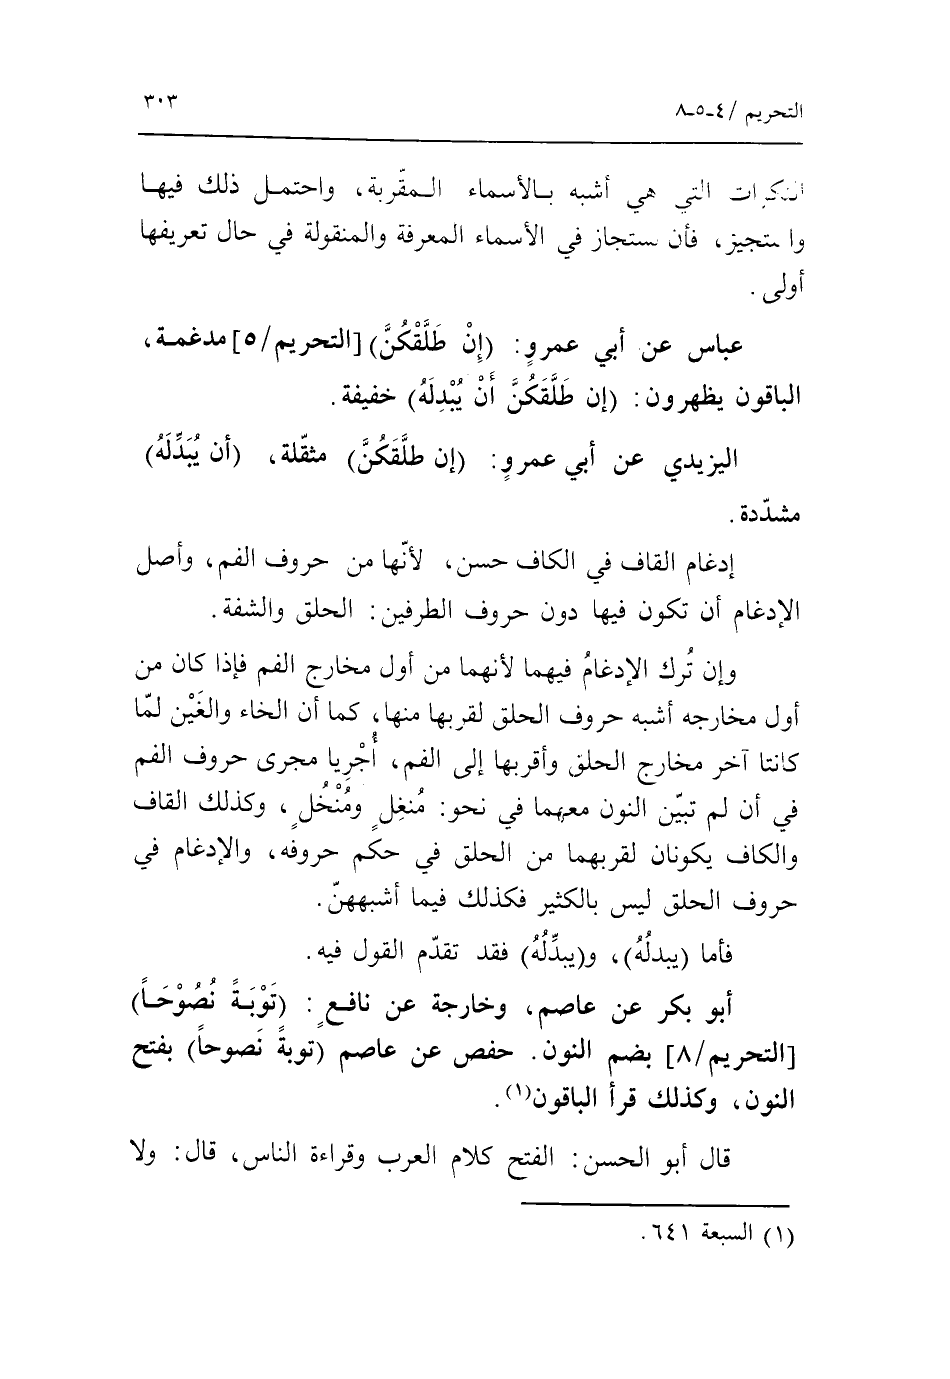 التحريم /٤-٥-٨
٣٠٣
النكرات التي هي أشبه بالأسماء المقّربة، واحتمل ذلك فيها
واستجيز، فأن يستجاز في الأسماء المعرفة والمنقولة في حال تعريفها
أولى.
عباس عن أبي عمروٍ: (إِنْ طَلَّقْكُنَّ) [التحريم/٥] مدغمة،
الباقون يظهرون: (إن طَلَّقَكُنَّ أَنْ يُبْدِلَهُ) خفيفة.
اليزيدي عن أبي عمروٍ: (إن طلَّقَكُنَّ) مثقّلة، (أن يُبَدِّلَهُ)
مشدّدة.
إدغام القاف في الكاف حسن، لأنّها من حروف الفم، وأصل
الإدغام أن تكون فيها دون حروف الطرفين: الحلق والشفة.
وإن تُرك الإدغامُ فيهما لأنهما من أول مخارج الفم فإذا كان من
أول مخارجه أشبه حروف الحلق لقربها منها، كما أن الخاء والغَيْن لمّا
كانتا آخر مخارج الحلق وأقربها إلى الفم، أُجْرِيا مجرى حروف الفم
في أن لم تبيّن النون معهما في نحو: مُنغِلٍ ومُنْخُلٍ، وكذلك القاف
والكاف يكونان لقربهما من الحلق في حكم حروفه، والإدغام في
حروف الحلق ليس بالكثير فكذلك فيما أشبههنّ.
فأما (يبدلُهُ)، و(يبدِّلُهُ) فقد تقدّم القول فيه.
أبو بكر عن عاصم، وخارجة عن نافعٍ: (تَوْبَةً نُصُوْحَاً)
[التحريم/٨] بضم النون. حفص عن عاصم (توبةً نَصوحاً) بفتح
النون، وكذلك قرأ الباقون(١).
قال أبو الحسن: الفتح كلام العرب وقراءة الناس، قال: ولا
(١) السبعة ٦٤١.